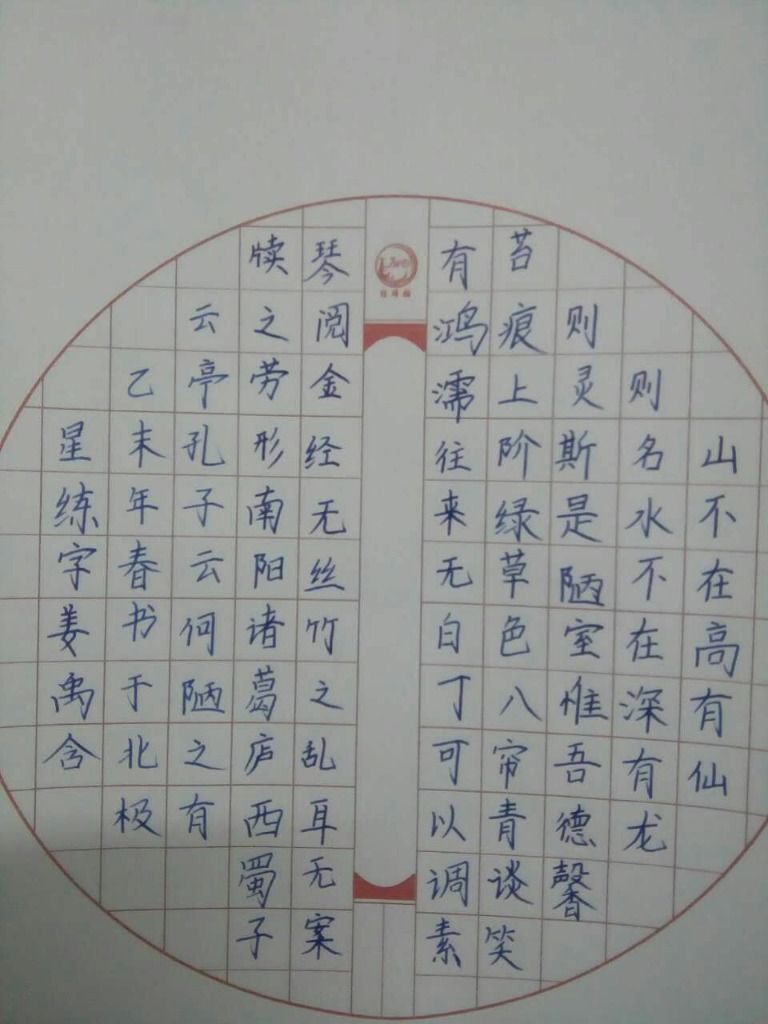 山不在高有仙
则名水不在深有龙
则灵斯是陋室惟吾德馨
苔痕上阶绿草色八帘青谈笑
有鸿濡往来无白丁可以调素
琴阅金经无丝竹之乱耳无案
牍之劳形南阳诸葛庐西蜀子
云亭孔子云何陋之有
乙末年春书于北极
星练字姜禹含